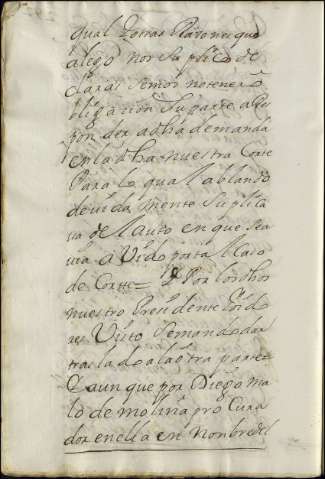 qual y otras Raçones que
alegó nos Suplicó de
clarasemos no tener o
bligacion Su parte a Res
ponder a dha demanda
en la dha nuestra Corte
Para lo qual ablando
devida mente Suplica
va del auto en que sea
via avido por tal Caso
de Corte = Y Por los dhos
nuestro Presidente Oido
res Visto Se mando dar
traslado a la otra parte =
Y aunque por Diego ma
lo de molina pro Cura
dor en ella en nonbre del